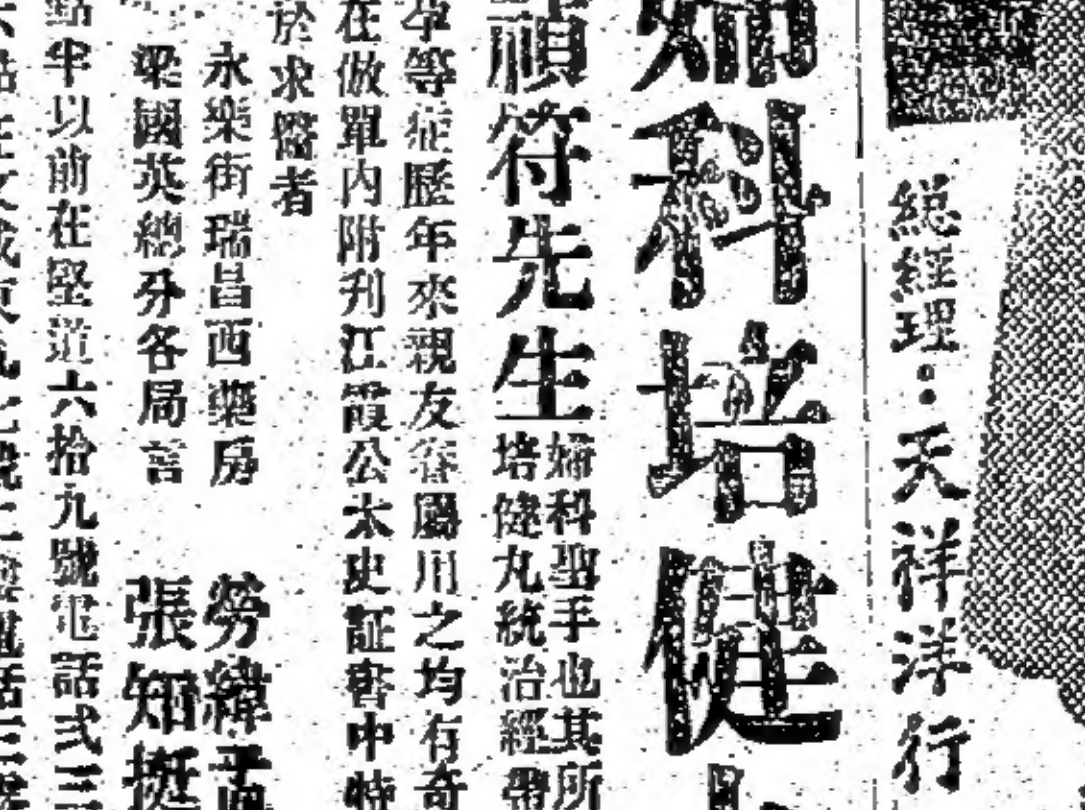 總經理：天祥洋行
婦科培健
禎符先生
婦科聖手也其所
培健丸統治經帶
孕等症歷年來親友眷屬用之均有奇
在做單內附刋江霞公太史証書中特
於求醫者
永樂街瑞昌西藥房
梁國英總分各局言
勞緯孟
張知挺
點半以前在堅道六拾九號電話弍三